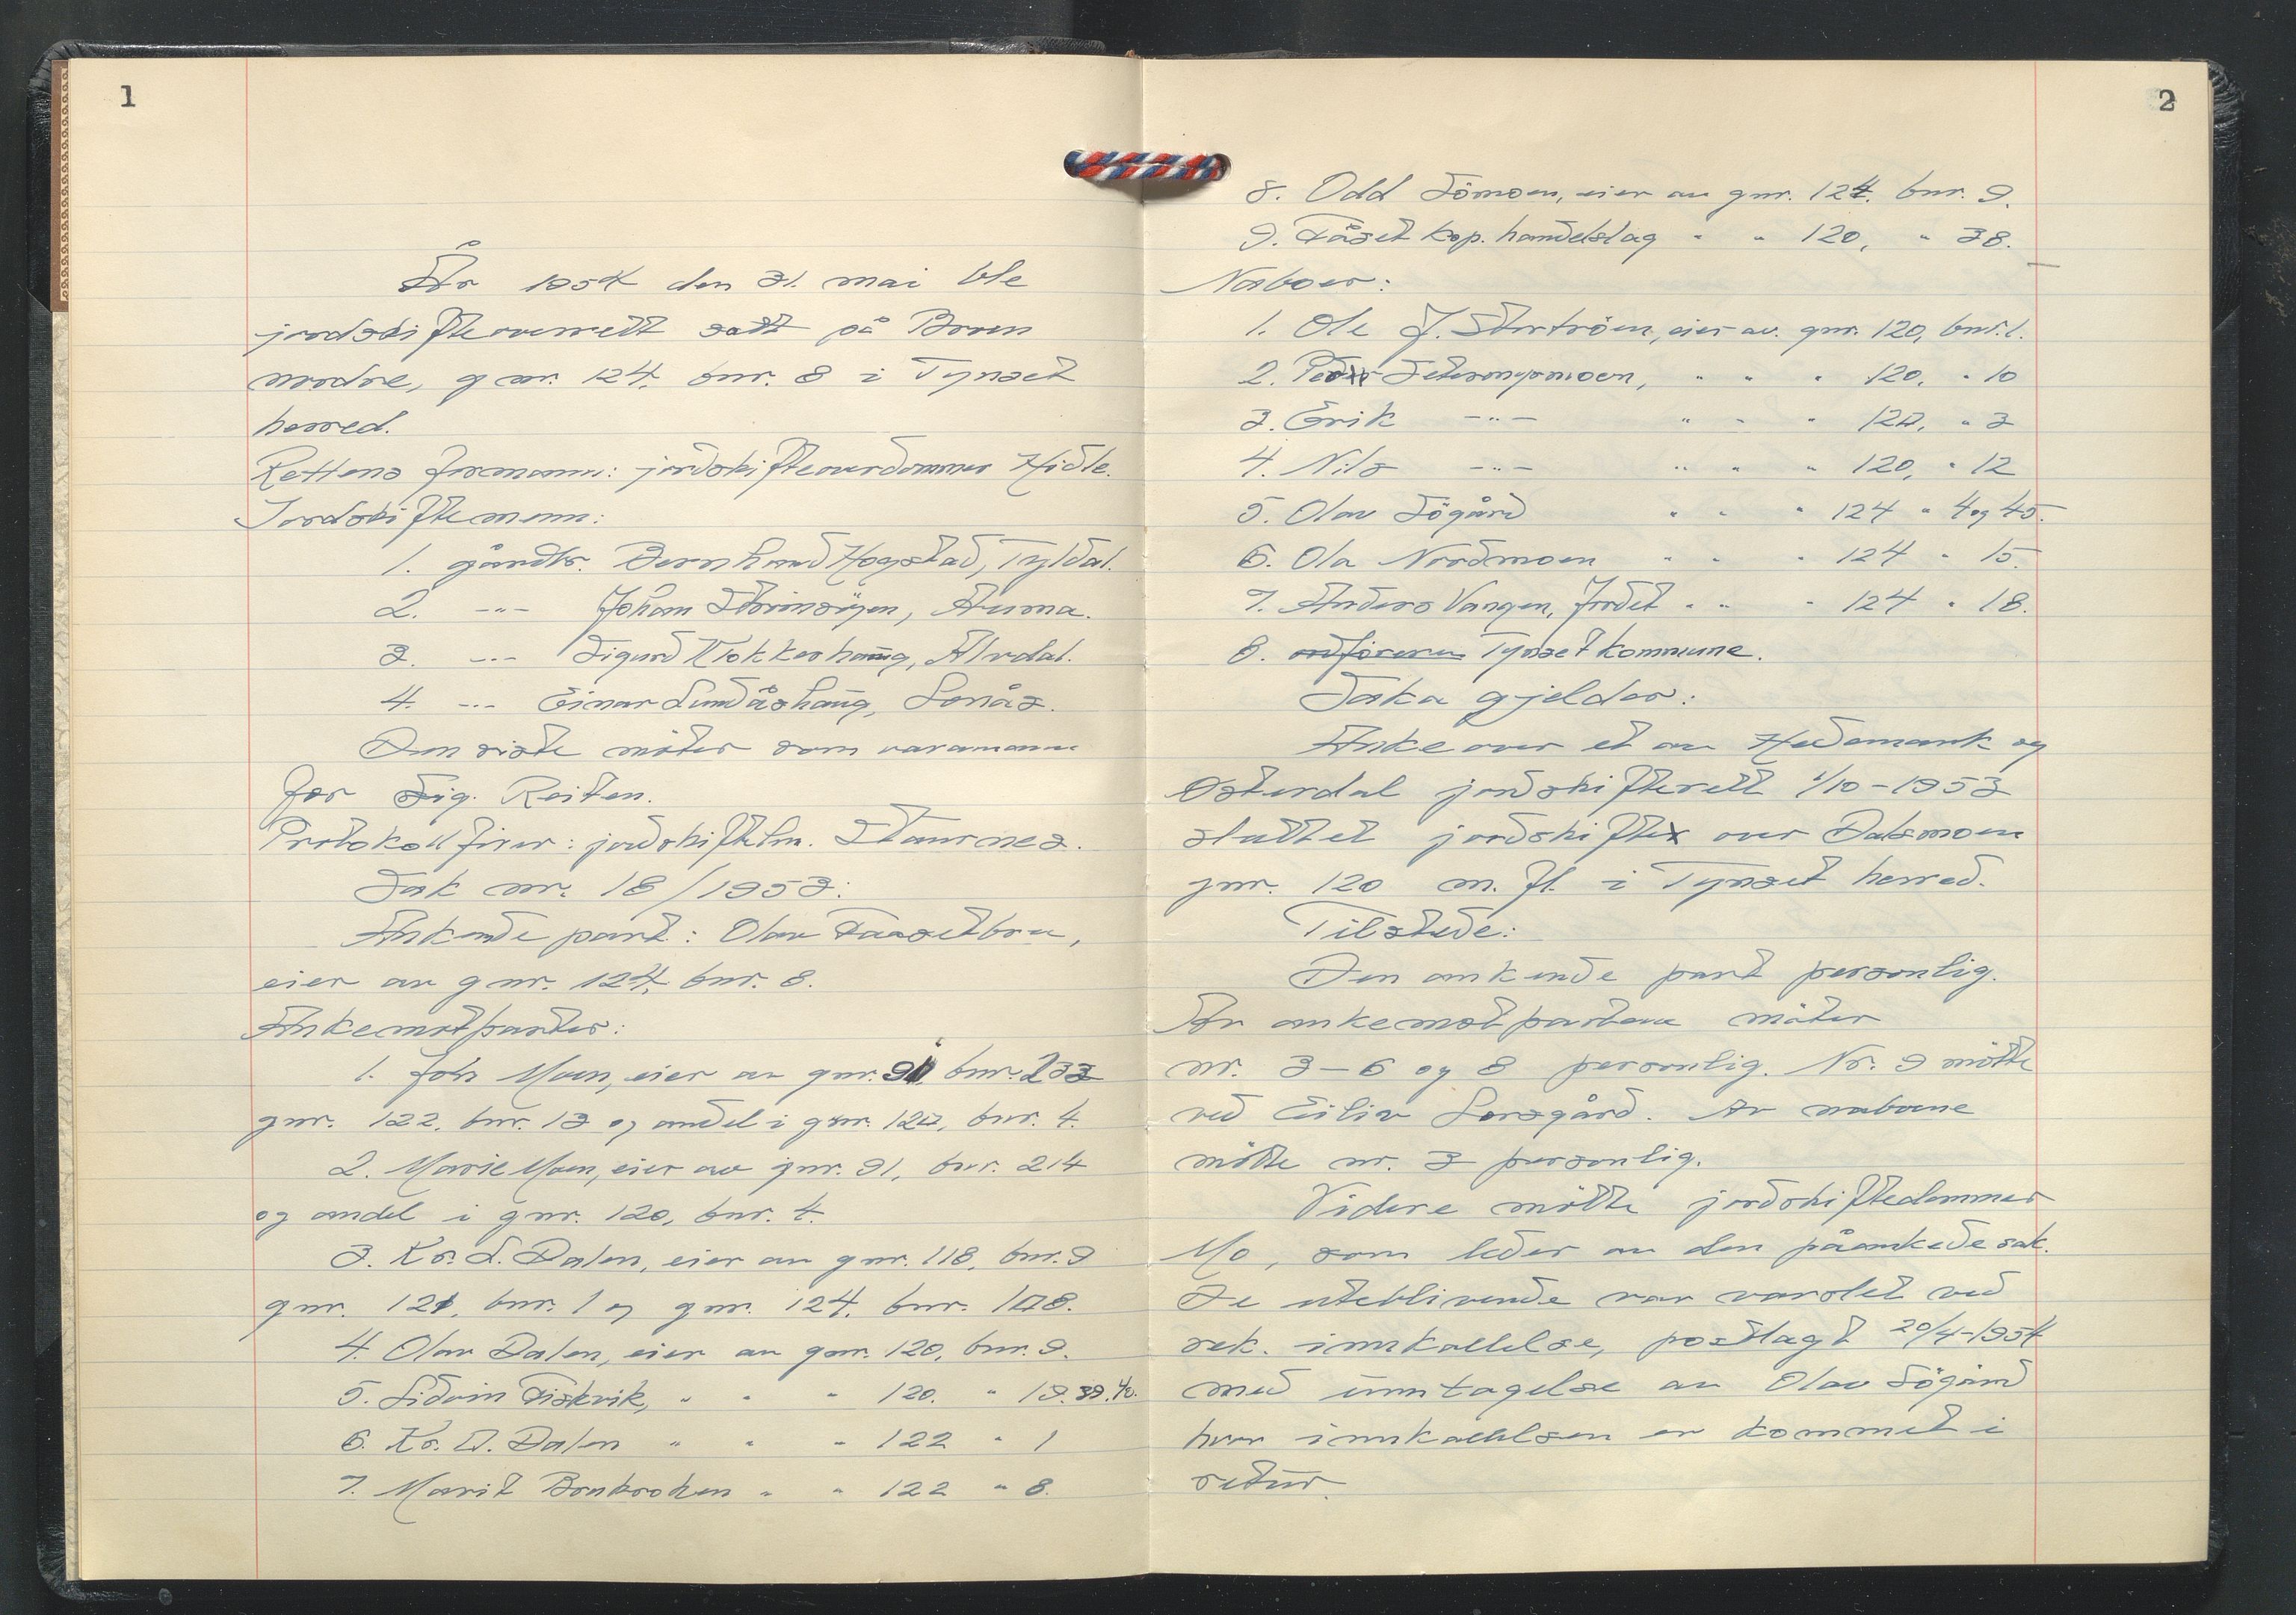 1
År 1954 den 31. mai ble
jordskifteoverrett satt på Broen
nordre, gnr. 124, bnr. 8 i Tynset
herred.
Rettens formann: jordskifteoverdommer Hidle.
Jordskiftemenn:
1. gårdbr. Bernhard Hogstad, Tyldal.
2. -"- Johan Storinsøyen, Auma.
3. -"- Sigurd Klokkerhaug, Alvdal.
4. -"- Einar Lundåshaug, Sonås.
Den siste møter som varamann
for Sig. Reiten.
Protokollfører: jordskiftefm. Staurnes.
Sak nr. 18/1953:
Ankende part: Olav Faasetbru,
eier av gnr. 124, bnr. 8.
Ankemotparter:
1. John Moen, eier av gnr. 91, bnr. 233
gnr. 122, bnr. 13 og andel i gnr. 120, bnr. 4.
2. Marie Moen, eier av gnr. 91, bnr. 214
og andel i gnr. 120, bnr. 4.
3. Kr. L. Dalen, eier av gnr. 118, bnr. 9
gnr. 121, bnr. 1 og gnr. 124, bnr. 108.
4. Olav Dalen, eier av gnr. 120, bnr. 9.
5. Sidvin Fiskvik, " " " 120. " 19. 39. 40.
6. Kr. O. Dalen " " " 122 " 1
7. Marit Brukroken " " 122 " 8.
2
8. Odd Sömoen, eier av gnr. 124. bnr. 9.
9. Fåset kop. handelslag " " 120, " 38.
Naboer:
1. Ole J. Storströen, eier av. gnr. 120, bnr. 1.
2. Peder Seteröymoen, " " " 120, " 10
3. Erik -"- " " " 120, " 3
4. Nils -"- " " " 120, " 12
5. Olav Sögård " " " 124 " 4 og 45.
6. Ola Nordmoen " " " 124 " 15.
7. Anders Vangen, Jordet " " " 124 " 18.
8. ordföreren Tynset kommune.
Saka gjelder:
Anke over et av Hedemark og
Österdal jordskifterett 1/10-1953
sluttet jordskifte over Dalsmoen
gnr. 120 m. fl. i Tynset herred.
Tilstede:
Den ankende part personlig.
Av ankemotpartene møter
nr. 3-6 og 8 personlig. Nr. 9 møtte
ved Eiliv Sorsgård. Av naboene
møtte nr. 3 personlig.
Videre møtte jordskiftedommer
Mo, som leder av den påankede sak.
De uteblivende var varslet ved
rek. innkallelse, postlagt 20/4-1954
med unntagelse av Olav Sögård
hvor innkallelsen er kommet i
retur.